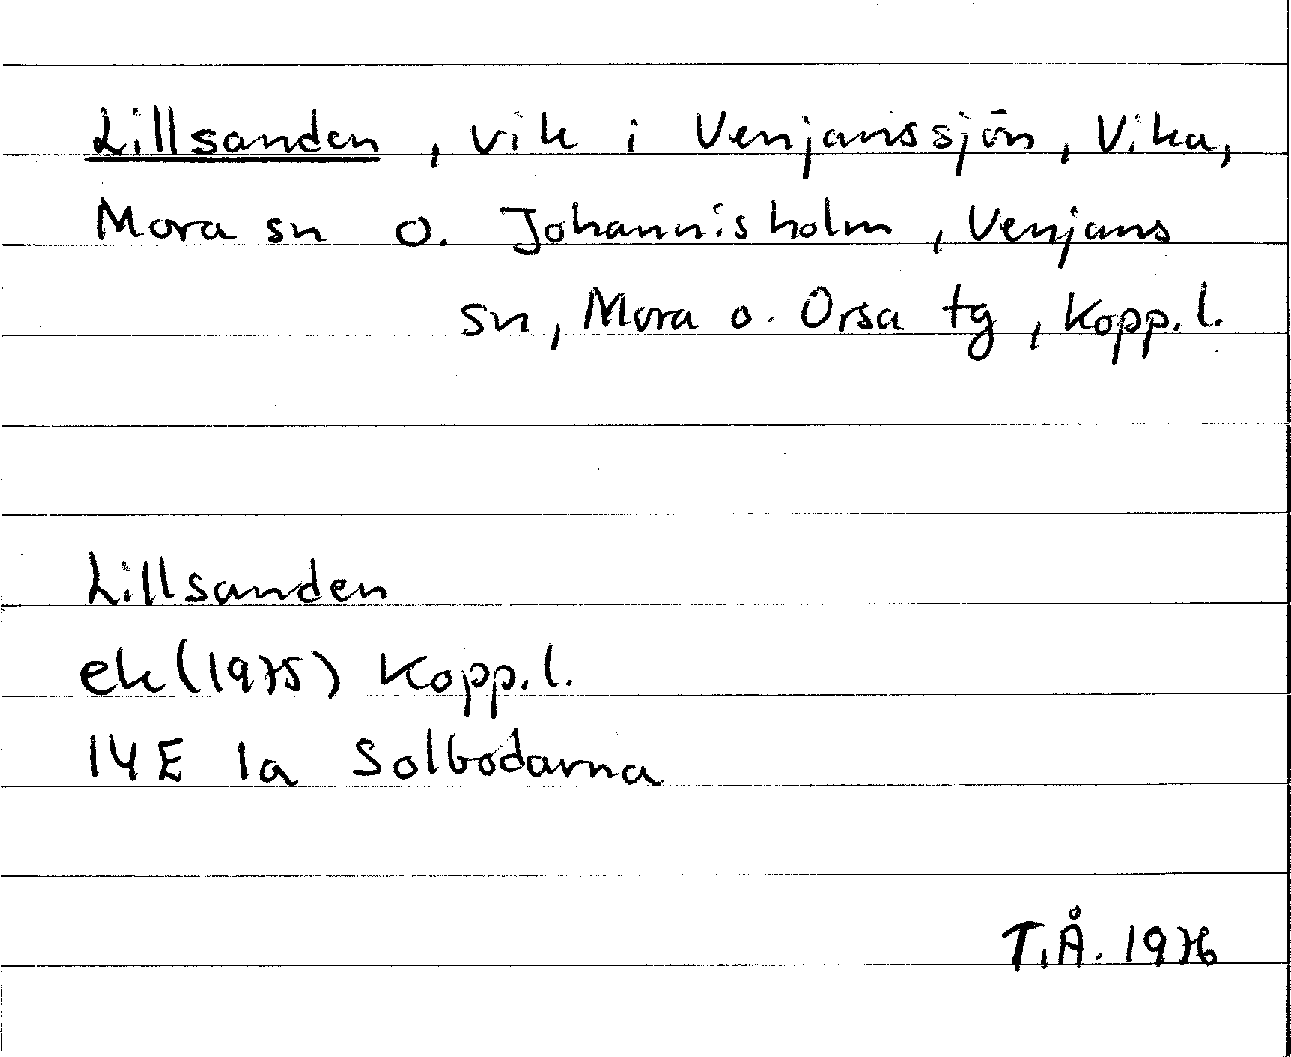 Lillsanden, vik i Venjanssjön, Vika,
Mora sn o. Johannisholm, Venjans
sn, Mora o. Orsa tg, Kopp. l.
Lillsanden
ek (1975) Kopp. l.
14E 1a Solbodarna
T.Å. 1976